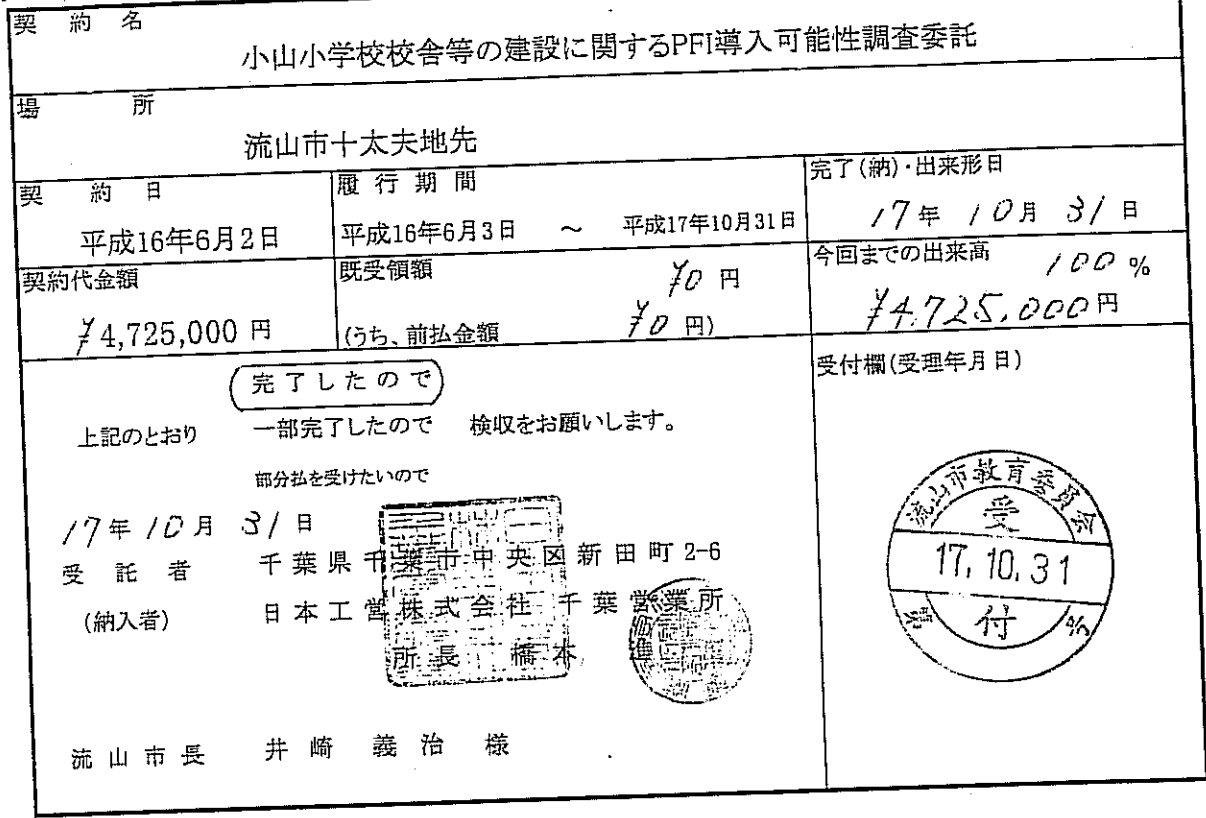 契約名
小山小学校校舎等の建設に関するPFI導入可能性調査委託
場所
流山市十太夫地先
契約日
平成16年6月2日
履行期間
平成16年6月3日 ～ 平成17年10月31日
完了(納)・出来形日
17年10月31日
契約代金額
¥4,725,000円
既受領額 ¥0円
(うち、前払金額 ¥0円)
今回までの出来高 100%
¥4,725,000円
完了したので
上記のとおり 一部完了したので 検収をお願いします。
部分払を受けたいので
17年10月31日
受託者 千葉県千葉市中央区新田町2-6
(納入者) 日本工営株式会社 千葉営業所
所長 橋本 進
流山市長 井崎義治様
受付欄(受理年月日)
流山市教育委員会
受
17.10.31
付
第 号